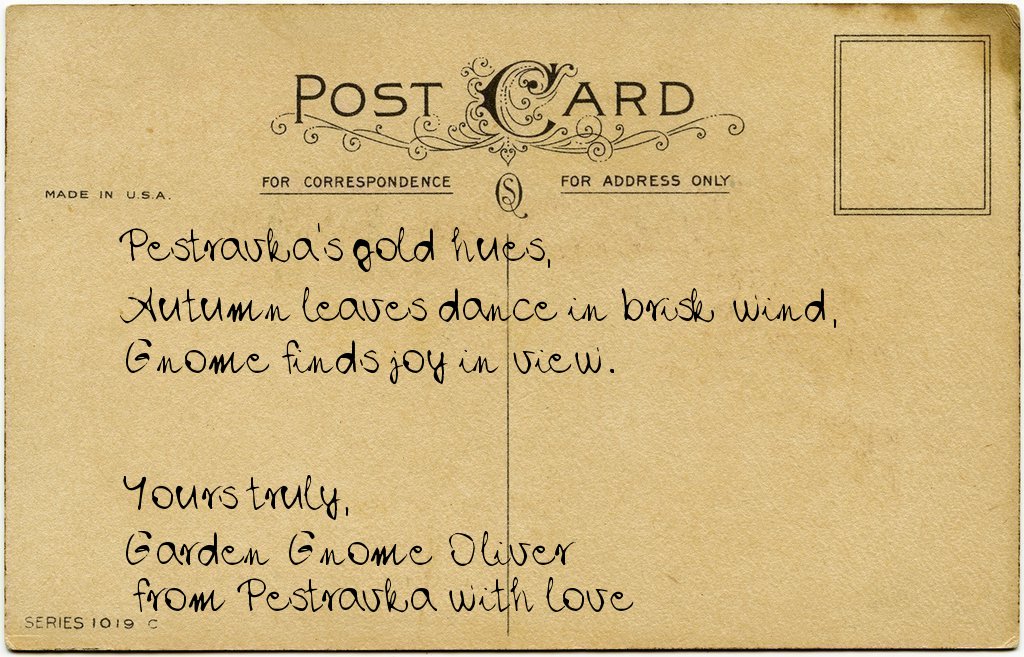 POST CARD
FOR CORRESPONDENCE
FOR ADDRESS ONLY
MADE IN U.S.A.
Pestravka's gold hues,
Autumn leaves dance in brisk wind,
Gnome finds joy in view.
Yours truly,
Garden Gnome Oliver
from Pestravka with love
SERIES 1019 C